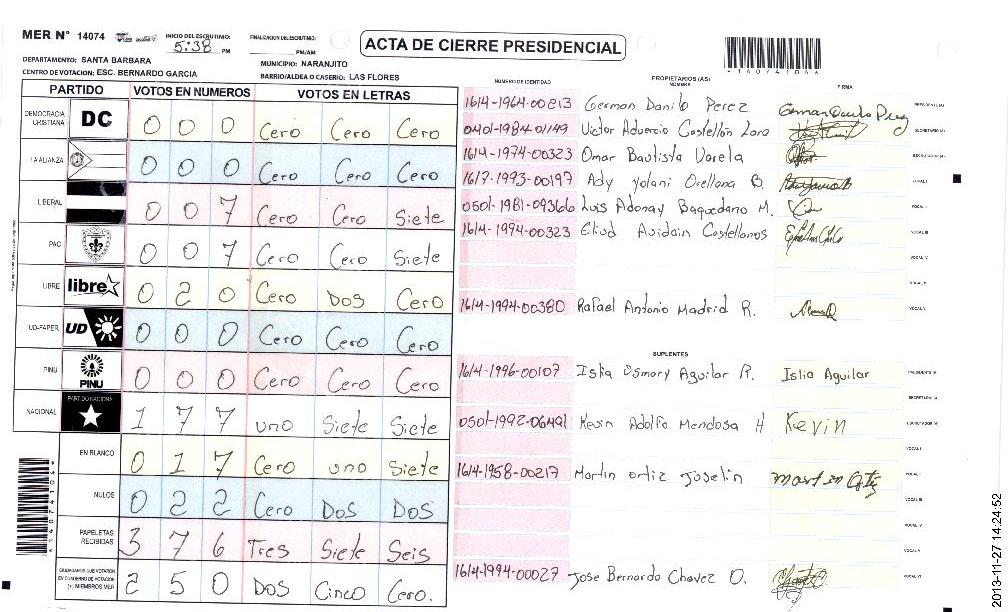 MER N° 14074
INICIO DEL ESCRUTINIO: 5:38 PM
FINALIZACION DEL ESCRUTINIO: PM/AM
ACTA DE CIERRE PRESIDENCIAL
DEPARTAMENTO: SANTA BARBARA
MUNICIPIO: NARANJITO
CENTRO DE VOTACION: ESC. BERNARDO GARCIA
BARRIO/ALDEA O CASERIO: LAS FLORES
PARTIDO VOTOS EN NUMEROS VOTOS EN LETRAS
DEMOCRACIA CRISTIANA DC 0 0 0 Cero Cero Cero
LA ALIANZA 0 0 0 Cero Cero Cero
LIBERAL 0 0 7 Cero Cero Siete
PAC 0 0 7 Cero Cero Siete
LIBRE libre 0 2 0 Cero Dos Cero
UD-FAPER UD 0 0 0 Cero Cero Cero
PINU PINU 0 0 0 Cero Cero Cero
NACIONAL PARTIDO NACIONAL 1 7 7 uno Siete Siete
EN BLANCO 0 1 7 Cero uno Siete
NULOS 0 2 2 Cero Dos Dos
PAPELETAS RECIBIDAS 3 7 6 Tres Siete Seis
CIUDADANOS QUE VOTARON EN CUADERNO DE VOTACION (+) MIEMBROS MER 2 5 0 Dos Cinco Cero.
NUMERO DE IDENTIDAD PROPIETARIOS (AS) NOMBRE FIRMA
1614-1964-00813 German Danilo Perez
0401-1984-01149 Victor Advercio Castellón Lara
1614-1974-00323 Omar Bautista Varela
1617-1993-00197 Ady Yolani Orellana B.
0501-1981-09366 Luis Adonay Baquedano M.
1614-1994-00323 Eliud Avidain Castellanos
1614-1994-00380 Rafael Antonio Madrid R.
SUPLENTES
1614-1996-00107 Islia Osmary Aguilar R. Islia Aguilar
0501-1992-06491 Kevin Adolfo Mendosa H Kevin
1614-1958-00217 Martin Ortiz Joselin
1614-1994-00027 Jose Bernardo Chavez O.
2013-11-27 14:24:52